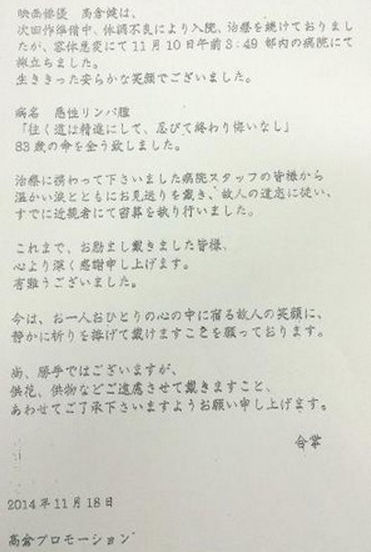 映画俳優 高倉健は、
次回作準備中、体調不良により入院、治療を続けておりまし
たが、容体急変にて11月10日午前3:49 都内の病院にて
旅立ちました。
生ききった安らかな笑顔でございました。
病名 悪性リンパ腫
「往く道は精進にして、忍びて終わり悔いなし」
83歳の命を全う致しました。
治療に携わって下さいました病院スタッフの皆様から
温かい涙とともにお見送りを戴き、故人の遺志に従い、
すでに近親者にて密葬を執り行いました。
これまで、お励まし戴きました皆様、
心より深く感謝申し上げます。
有難うございました。
今は、お一人おひとりの心の中に宿る故人の笑顔に、
静かに祈りを捧げて戴けますことを願っております。
尚、勝手ではございますが、
供花、供物などご遠慮させて戴きますこと、
あわせてご了承下さいますようお願い申し上げます。
合掌
2014年11月18日
高倉プロモーション